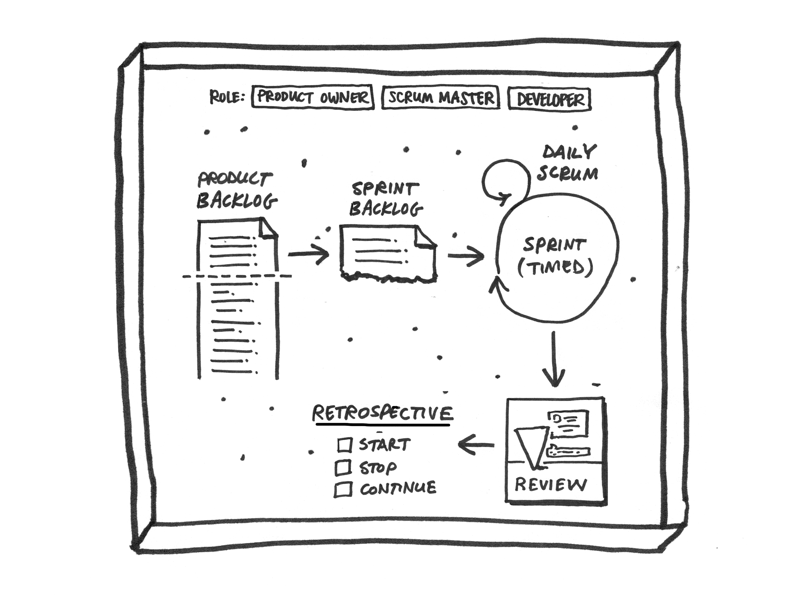 ROLE: PRODUCT OWNER SCRUM MASTER DEVELOPER
PRODUCT
BACKLOG
SPRINT
BACKLOG
DAILY
SCRUM
SPRINT
(TIMED)
REVIEW
RETROSPECTIVE
START
STOP
CONTINUE